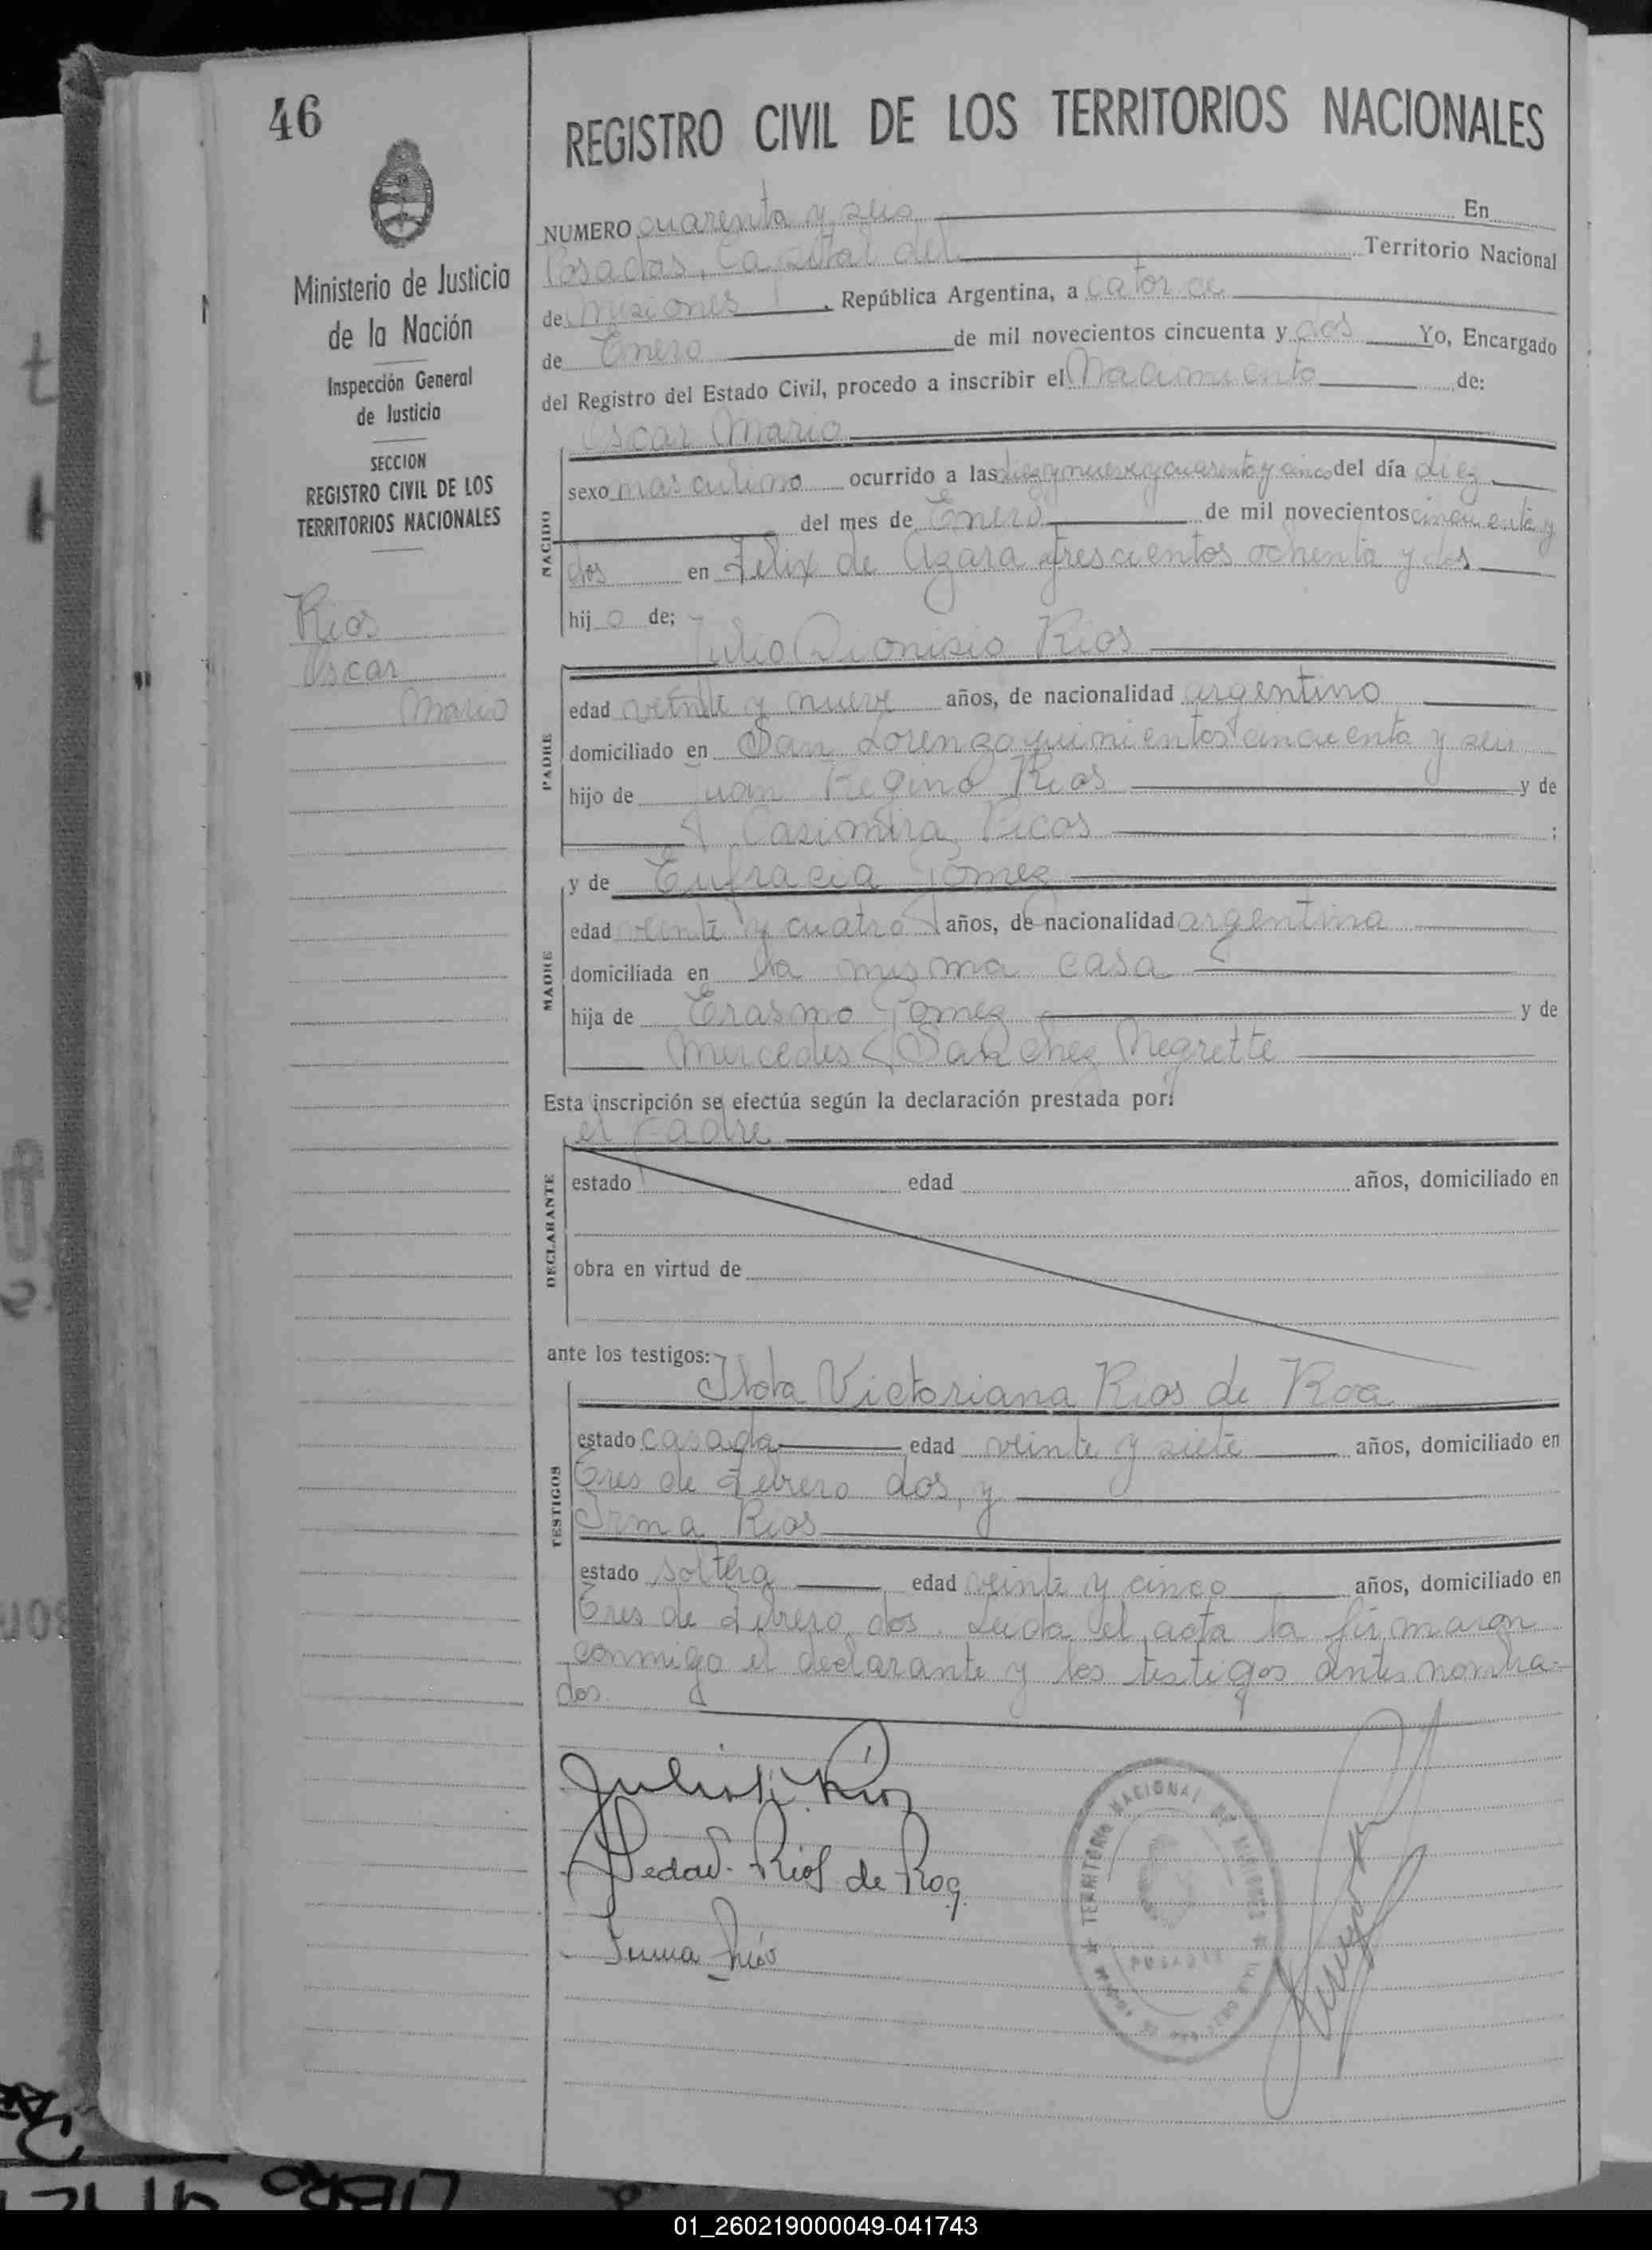 46
Ministerio de Justicia
de la Nación
Inspección General
de Justicia
SECCION
REGISTRO CIVIL DE LOS
TERRITORIOS NACIONALES
Rios
Oscar
Mario
REGISTRO CIVIL DE LOS TERRITORIOS NACIONALES
NUMERO cuarenta y seis En
Posadas, Capital del Territorio Nacional
de Misiones, República Argentina, a catorce
de Enero de mil novecientos cincuenta y dos Yo, Encargado
del Registro del Estado Civil, procedo a inscribir el Nacimiento de:
Oscar Mario
NACIDO
sexo masculino ocurrido a las diez y nueve y cuarenta y cinco del día diez
del mes de Enero de mil novecientos cincuenta y
dos en Félix de Azara trescientos ochenta y dos
hijo de;
Julio Dionisio Rios
PADRE
edad veinte y nueve años, de nacionalidad argentino
domiciliado en San Lorenzo quinientos cincuenta y seis
hijo de Juan Regino Rios y de
Casimira Picos ;
y de Eufracia Gomez
MADRE
edad veinte y cuatro años, de nacionalidad argentina
domiciliada en la misma casa
hija de Erasmo Gomez y de
Mercedes Sanchez Negrette
Esta inscripción se efectúa según la declaración prestada por:
el Padre
DECLARANTE
estado edad años, domiciliado en
obra en virtud de
ante los testigos:
Ilda Victoriana Rios de Roa
TESTIGOS
estado casada edad veinte y siete años, domiciliado en
Tres de Febrero dos, y
Irma Rios
estado soltera edad veinte y cinco años, domiciliado en
Tres de Febrero dos. Leida el acta la firmaron
conmigo el declarante y los testigos antes nombra-
dos.
Julio D. Rios
Ildedav. Rios de Roa
Irma Rios
TERRITORIO NACIONAL DE MISIONES
POSADAS
LIBRO
01_260219000049-041743